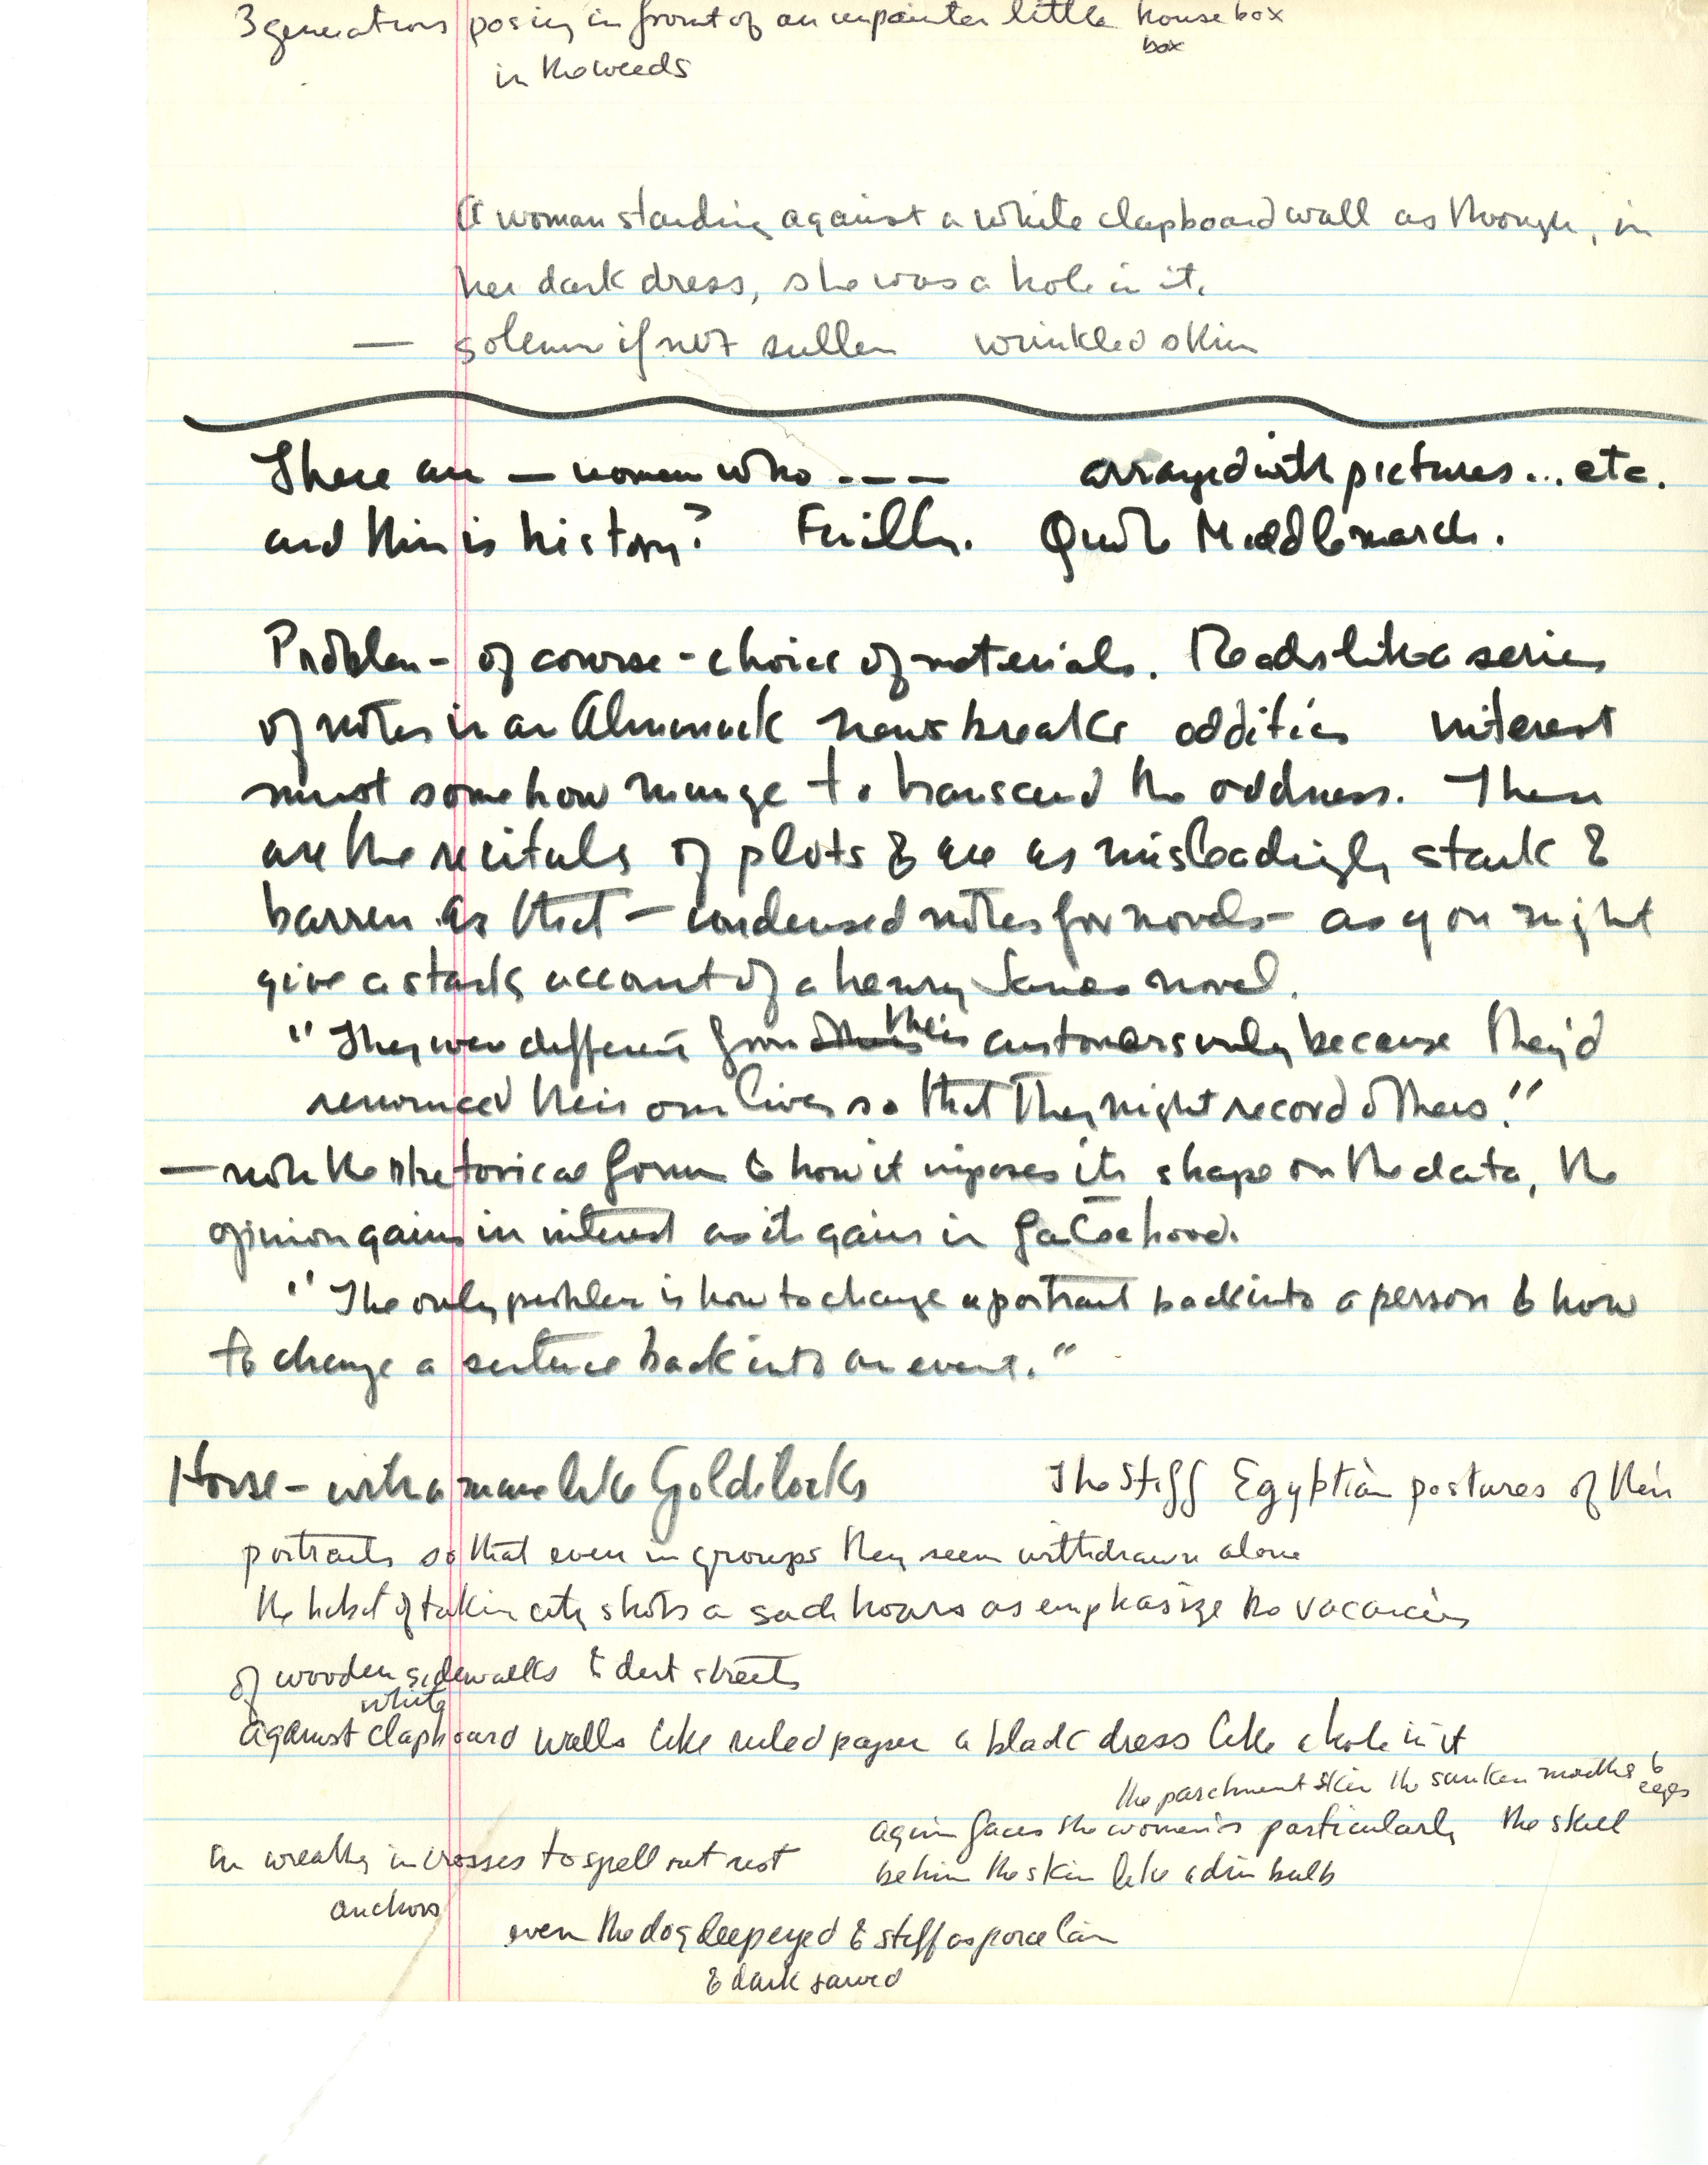 3 generations posing in front of an unpainted little house box
box
in the weeds
A woman standing against a white clapboard wall as though, in
her dark dress, she was a hole in it.
— solemn if not sullen wrinkled skin
There are — women who - - - arranged with pictures... etc.
and this is history? Finally. Quote Middlemarch.
Problem - of course - choice of materials. Reads like a series
of notes in an Almanack news breaks oddities interest
must somehow mange to transcend the oddness. These
are the recitals of plots & are as misleadingly stark &
barren as that — condensed notes for novels - as you might
give a stark account of a henry James novel.
"They were different from their customers only because they'd
renounced their own lives so that they might record others."
— note the rhetorical form & how it imposes its shape on the data, the
opinion gains in interest as it gains in falsehood.
"The only problem is how to change a portrait back into a person & how
to change a sentence back into an event."
Horse - with a mane like Goldilocks The stiff Egyptian postures of their
portraits so that even in groups they seem withdrawn alone
the habit of takin city shots a such hours as emphasize the vacancies
of wooden sidewalks & dirt streets
white
against clapboard walls like ruled paper a black dress like a hole in it
the parchment skin the sunken mouths & eyes
again faces the women's particularly the skull
in wreaths in crosses to spell out rest
behin the skin like a dim bulb
anchors
even the dog deepeyed & stiff as porcelain
& dark